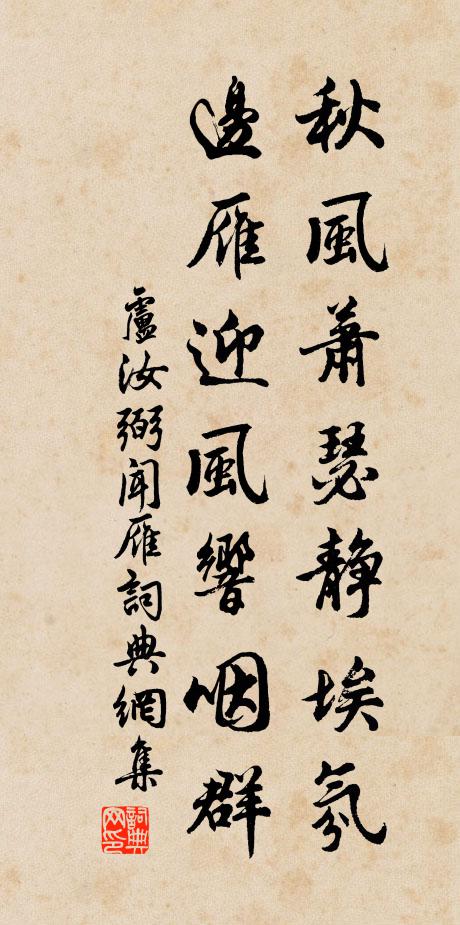 秋風蕭瑟靜埃氛
邊雁迎風響咽群
盧汝弼聞雁詞典網集
詞典网印